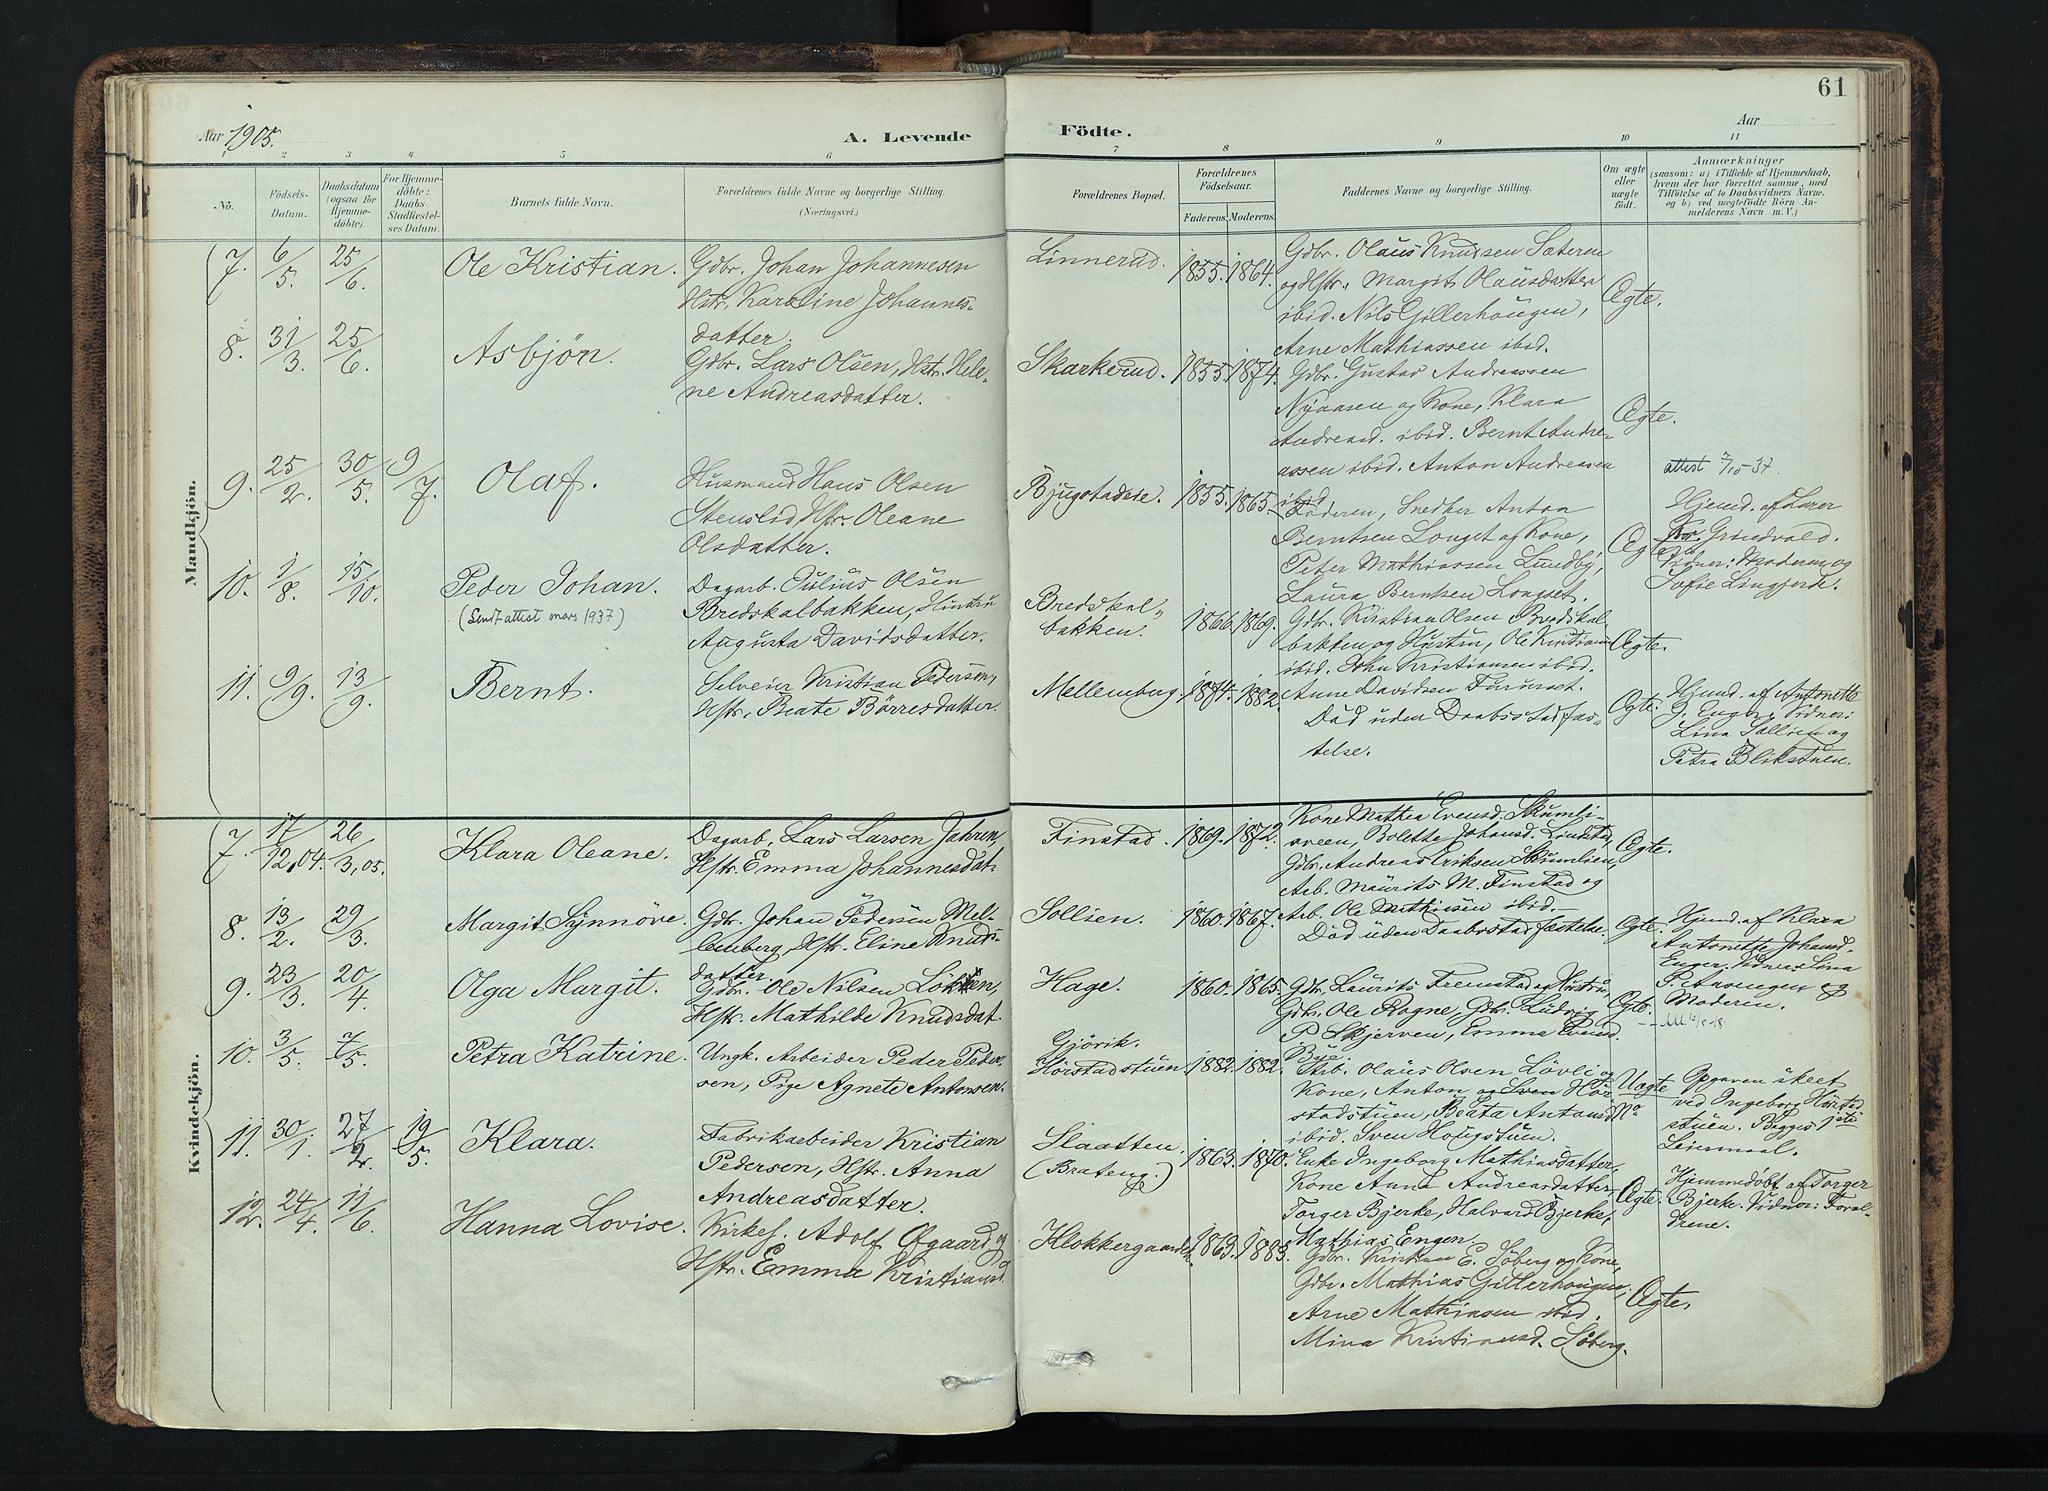 61
Aar 1905.
A. Levende
Födte.
Aar
1 2 3 4 5 6 7 8 9 10 11
No.
Födsels-Datum.
Daabsdatum (ogsaa for Hjemme-döbte).
For Hjemme-döbte: Daabs-Stadfæstel-ses Datum.
Barnets fulde Navn.
Forældrenes fulde Navne og borgerlige Stilling.
(Næringsvei.)
Forældrenes Bopæl.
Forældrenes Födselsaar.
Faderens. Moderens.
Faddernes Navne og borgerlige Stilling.
Om ægte eller uægte födt.
Anmærkninger
(saasom: a) i Tilfælde af Hjemmedaab, hvem der har forrettet samme, med Tilföielse af to Daabsvidners Navne. og b) ved uægtefödte Börn Anmelderens Navn m. V.)
Mandkjön.
7. 6/5. 25/6. Ole Kristian.
Gdbr. Johan Johannesen
Hstr. Karoline Johannes-
datter.
Linnerud. 1855. 1864.
Gdbr. Olaus Knudsen Sæteren
og Hstr. Margit Olausdatter
ibid. Nils Gillerhaugen,
Arne Mathiassen ibid.
Ægte.
8. 31/3. 25/6. Asbjön.
Gdbr. Lars Olsen, Hstr. Hele-
ne Andreasdatter.
Skarkerud. 1855. 1874.
Gdbr. Gustav Andreassen
Nyaasen og Kone, Klara
Andreasd. ibid. Bernt Andre-
assen ibid. Anton Andreasen
ibid
Ægte.
9. 25/2. 30/5. 9/7. Olaf.
Husmand Hans Olsen
Stenslid, Hstr. Oleane
Olsdatter.
Bjugstadeie. 1855. 1865.
Faderen, Snedker Anton
Berntsen Longset og Kone,
Peter Mathiassen Lundby,
Laura Berntsen Longset.
Ægte
attest
Hjemd. af Lærer
Grindvold.
Vidner: Moderen og
Sofie Lingjerde.
10. 1/8. 15/10. Peder Johan.
(Sendt attest mars 1937)
Dagarb. Julius Olsen
Bredskalbakken, Hustru
Augusta Davidsdatter.
Bredskal-
bakken. 1866. 1869.
Gdbr. Kristian Olsen Bredskal-
bakken og Hustru, Ole Kristiansen
ibid. John Kristiansen ibid.
Anne Davidsen Fururset.
Ægte.
11. 9/9. 13/9. Bernt.
Selveier Kristian Pedersen,
Hstr. Beate Börresdatter.
Mellemberg. 1874. 1882.
Död uden Daabsstadfæs-
telse.
Ægte.
Hjemd. af Antonette
J. Enger. Vidner:
Lina Sollien og
Petra Blikstuen.
Kvindekjön.
7. 17/12,04. 26/3,05. Klara Oleane.
Dagarb. Lars Larsen Jahren,
Hstr. Emma Johannesdat.
Finstad. 1869. 1872.
Kone Mathea Evensd. Skumli-
aveen, Bolette Johansd. Lindstad,
Gdbr. Andreas Eriksen Skumlien,
Arb. Maurits M. Finstad og
Arb. Ole Mathisen ibid.
Ægte.
8. 13/2. 29/3. Margit Synnöve.
Gdbr. Johan Pedersen Mel-
lemberg, Hstr. Eline Knuds-
datter.
Sollien. 1860. 1867.
Död uden Daabsstadfæstelse.
Ægte.
Hjemd. af Klara
Antonette Johansd.
Enger. Vidner: Lina
P. Aavengen og
Moderen.
9. 23/3. 20/4. Olga Margit.
Gdbr. Ole Nilsen Lökken,
Hstr. Mathilde Knudsdat.
Hage. 1860. 1865.
Gdbr. Laurits Fremstad og Hustru,
Gdbr. Ole Rogne, Gdbr. Ludvig
P. Skjerven, Emma Evensd.
Bye.
Ægte.
10. 3/5. 7/5. Petra Katrine.
Ungk. Arbeider Peder Peder-
sen, Pige Agnete Antonsen.
Gjövik.
Hörstadstuen. 1882. 1882.
Arb. Olaus Olsen Lövli og
Kone, Anton og Sven Hör-
stadstuen, Beata Antonsd.
ibid. Sven Hougstuen.
Uægte
No
Opgaven skeet
ved Ingeborg Hörstad
stuen. Begges 1ste
Leiermaal.
11. 30/1. 27/2. 19/5. Klara.
Fabrikarbeider Kristian
Pedersen, Hstr. Anna
Andreasdatter.
Slaatten.
(Brateng.) 1863. 1870.
Enke Ingeborg Mathiasdatter,
Kone Anne Andreasdatter
Torger Bjerke, Halvard Bjerke,
Mathias Engen.
Ægte.
Hjemmedöbt af Torger
Bjerke. Vidner: Foræl-
drene.
12. 24/4. 11/6. Hanna Lovise.
Kirkes. Adolf Øfgaard og
Hstr. Emma Kristiansd.
Klokkergaarden. 1863. 1883.
Gdbr. Kristian E. Söberg og Kone,
Gdbr. Mathias Gillerhaugen,
Arne Mathiasen ibid.
Mina Kristiansd. Söberg.
Ægte.